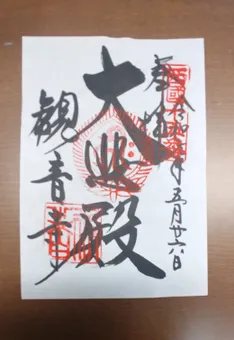 奉拝
令和 年五月廿六日
大悲殿
観音寺